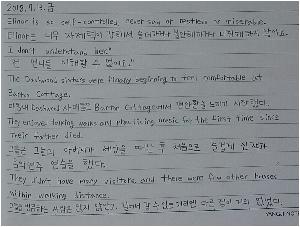 2018. 9. 3. 금
Elinor is so self-controlled, never sad or restless or miserable.
Elinor는 너무 자제력이 강해서 슬퍼하거나 불안해하거나 비참해하지 않아요.
I don't understand her."
전 언니를 이해할 수 없어요."
The Dashwood sisters were finally beginning to feel comfortable at
Barton Cottage.
마침내 Dashwood 자매들은 Barton Cottage에서 편안함을 느끼기 시작했다.
They enjoyed taking walks and practicing music for the first time since
their father died.
그들은 그들의 아버지가 세상을 떠난 후 처음으로 산책과
음악연주 연습을 했다.
They didn't have many visitors, and there were few other houses
within walking distance.
그들을 방문하는 사람은 많지 않았고, 걸어서 갈 수 있는 거리에 다른 집이 거의 없었다.